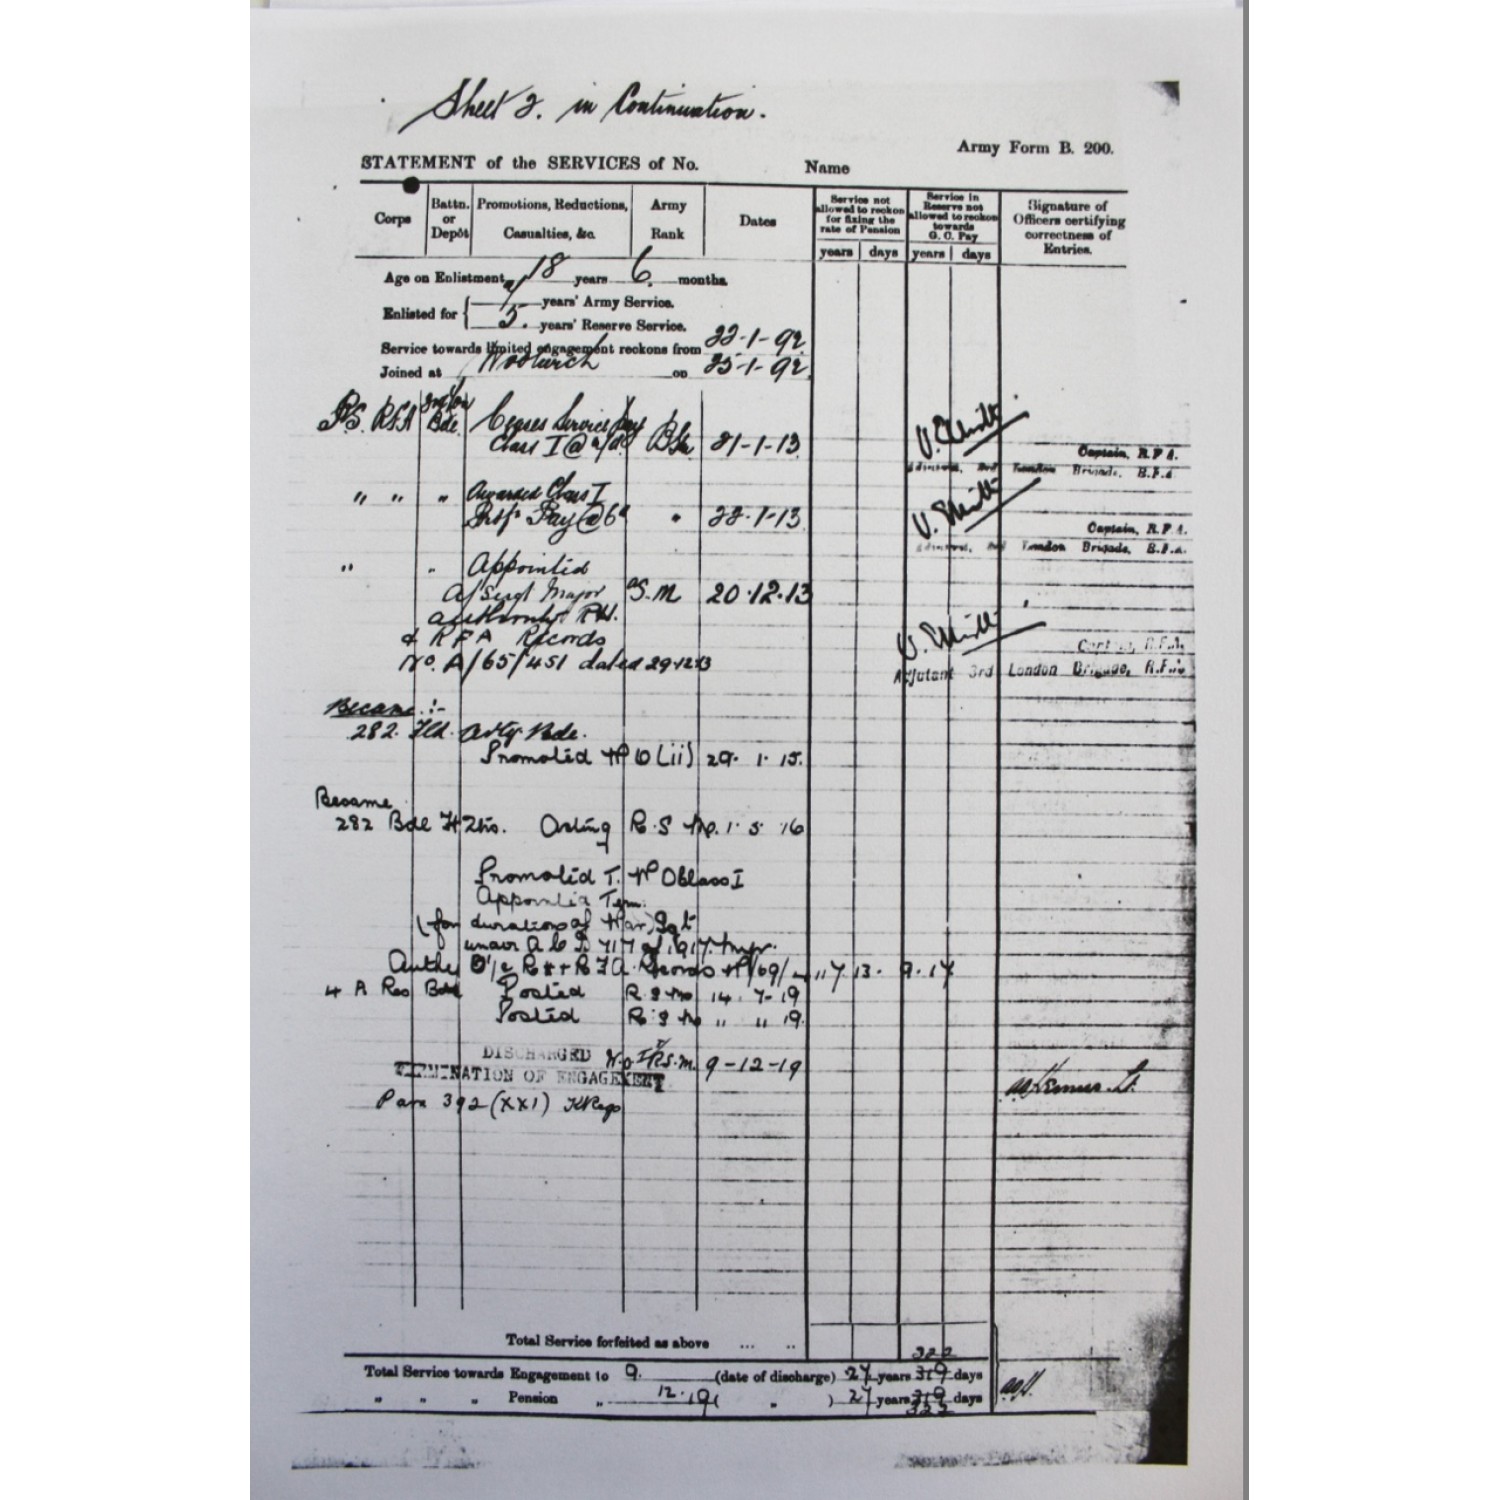 Sheet 2. in Continuation.
Army Form B. 200.
STATEMENT of the SERVICES of No. Name
Corps
Battn. or Depôt
Promotions, Reductions, Casualties, &c.
Army Rank
Dates
Service not allowed to reckon for fixing the rate of Pension
Service in Reserve not allowed to reckon towards G. C. Pay
Signature of Officers certifying correctness of Entries.
years days years days
Age on Enlistment 18 years 6 months.
Enlisted for 7 years' Army Service.
5. years' Reserve Service.
Service towards limited engagement reckons from 22-1-92
Joined at Woolwich on 25-1-92
P.S. RFA Bde. Ceases Service Pay
Class I @ 21-1-13
Captain, R.F.A.
Adjutant, 3rd London Brigade, R.F.A.
" " " Awarded Class I
Pay @ 6d " 22-1-13
Captain, R.F.A.
Adjutant, 3rd London Brigade, R.F.A.
" " Appointed
a/Sergt Major a/S.M 20.12.13
authority RH.
& RFA Records
No. A/65/451 dated 29.12.13
Captain, R.F.A.
Adjutant 3rd London Brigade, R.F.A.
Became :-
282. Fld. Arty. Bde.
Promoted W O (ii) 29. 1. 15.
Became
282 Bde H Qrs. Acting R.S.M. 1. 5. 16
Promoted T. W O Class I
Appointed Tem.
(for duration of War)
under A C I 717 of 1917.
Auth O i/c RH & RFA Records 13. 9. 17
4 A Res Bde Posted R S M 14. 7. 19
Posted R S M " " 19.
DISCHARGED W.O I R.S.M. 9-12-19
TERMINATION OF ENGAGEMENT
Para 392 (XXI) KRegs
Total Service forfeited as above ... ..
322
Total Service towards Engagement to 9. (date of discharge) 27 years 319 days
" " " Pension " 12.19 ( " ) 27 years 319 days
322